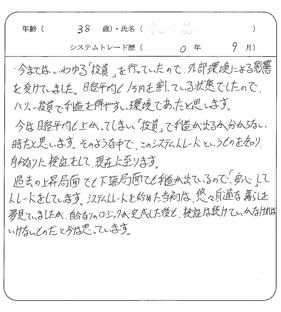 年齢( 38 歳)・氏名(
システムトレード歴( 0 年 9 月)
今までは、いわゆる「投資」を行っていたので、外部環境による影響
を受けました。日経平均も1万円を割している状態でしたので、
ハイ、投資で利益を得やすい環境であったと思います。
今は日経平均も上がってしまい「投資」で利益が出るか、分からない
時だと思います。そのような中で、このシステムトレードというものを知り
自分なりに検証をして、現在に至ります。
過去の上昇局面でも下落局面でも利益が出ているので「安心」して
トレードをしています。システムトレードを始めた当初は、悠々自適な暮らしを
夢見ていましたが、自分なりのロジックが完成した後も、検証は続けていかなければ
いけないものだと今は思っています。